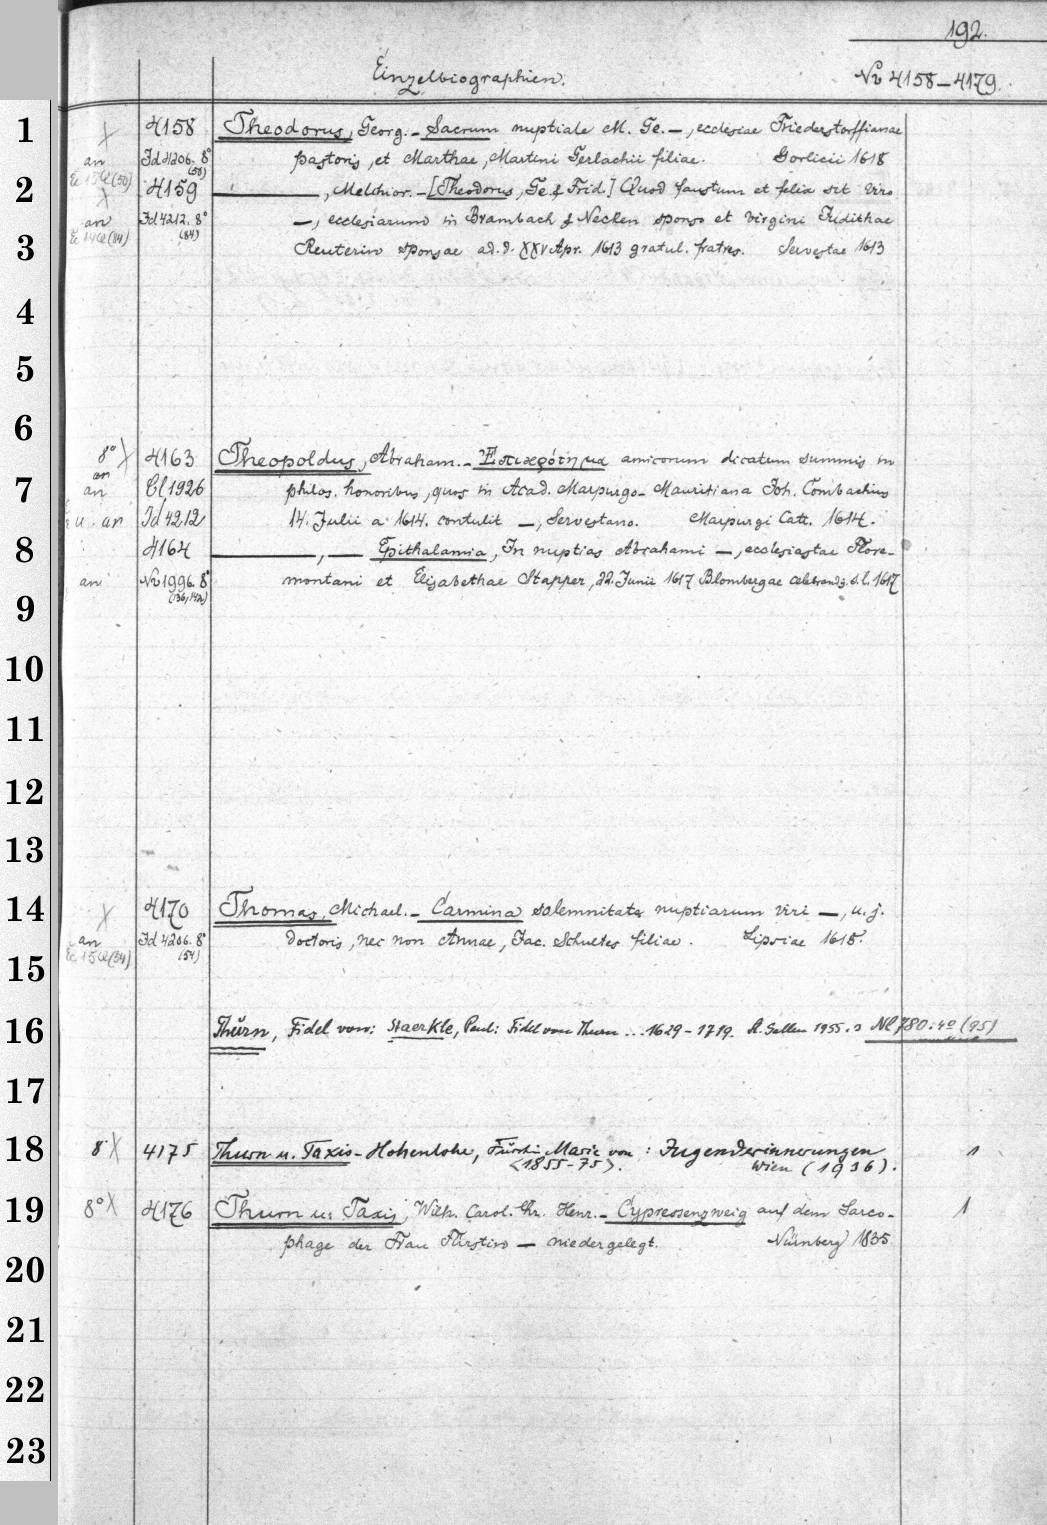 192.
Einzelbiographien. No 4158–4179.
1 4158 Theodorus, Georg. – Sacrum nuptiale M. Ge. –, ecclesiae Friederstorffianae
an Id 4206. 8° (50) pastoris, et Marthae, Martini Gerlachii filiae. Gorlicii 1618
2 4159 ———, Melchior. – [Theodorus, Ge. & Frid.] Quod faustum et felix sit viro
an Id 4212. 8° (84) –, ecclesiarum in Brambach & Necken sponso et virgini Judithae
3 Reuterin sponsae a.d. d. XXV Apr. 1613 gratul. fratres. Servestae 1613
4
5
6
8° X 4163 Theopoldus, Abraham. – Ἐπικρότημα amicorum dicatum summis in
7 an an Cl 1926 philos. honoribus, quos in Acad. Marpurgo-Mauritiana Joh. Combachius
u. an Id 4212 14. Julii a. 1614. contulit –, Servestano. Marpurgi Catt. 1614.
8 4164 ———, — Epithalamia, In nuptias Abrahami –, ecclesiastae Flore-
an No 1996. 8° montani et Elisabethae Stapper, 22. Junii 1617 Blombergae celebrand. s. l. 1617
9
10
11
12
13
14 X 4170 Thomas, Michael. – Carmina solemnitate nuptiarum viri –, u. j.
an Id 4206. 8° (54) doctoris, nec non Annae, Jac. Schultes filiae. Lipsiae 1618.
15
16 Thurn, Fidel von: Staerkle, Paul: Fidel von Thurn ... 1629–1719. St. Gallen 1955. Nl 780: 4° (95)
17
18 8° X 4175 Thurn u. Taxis-Hohenlohe, Fürstin Marie von: Jugenderinnerungen 1
<1855–75>. Wien (1936).
19 8° X 4176 Thurn u. Taxis, Wilh. Carol. Chr. Henr. – Cypressenzweig auf dem Sarco- 1
phage der Frau Fürstin – niedergelegt. Nürnberg 1835
20
21
22
23